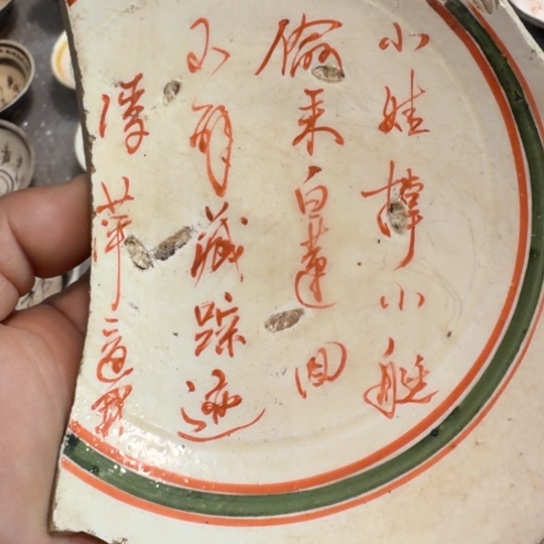 小娃撑小艇
偷采白蓮回
不解藏踪迹
浮萍一道開